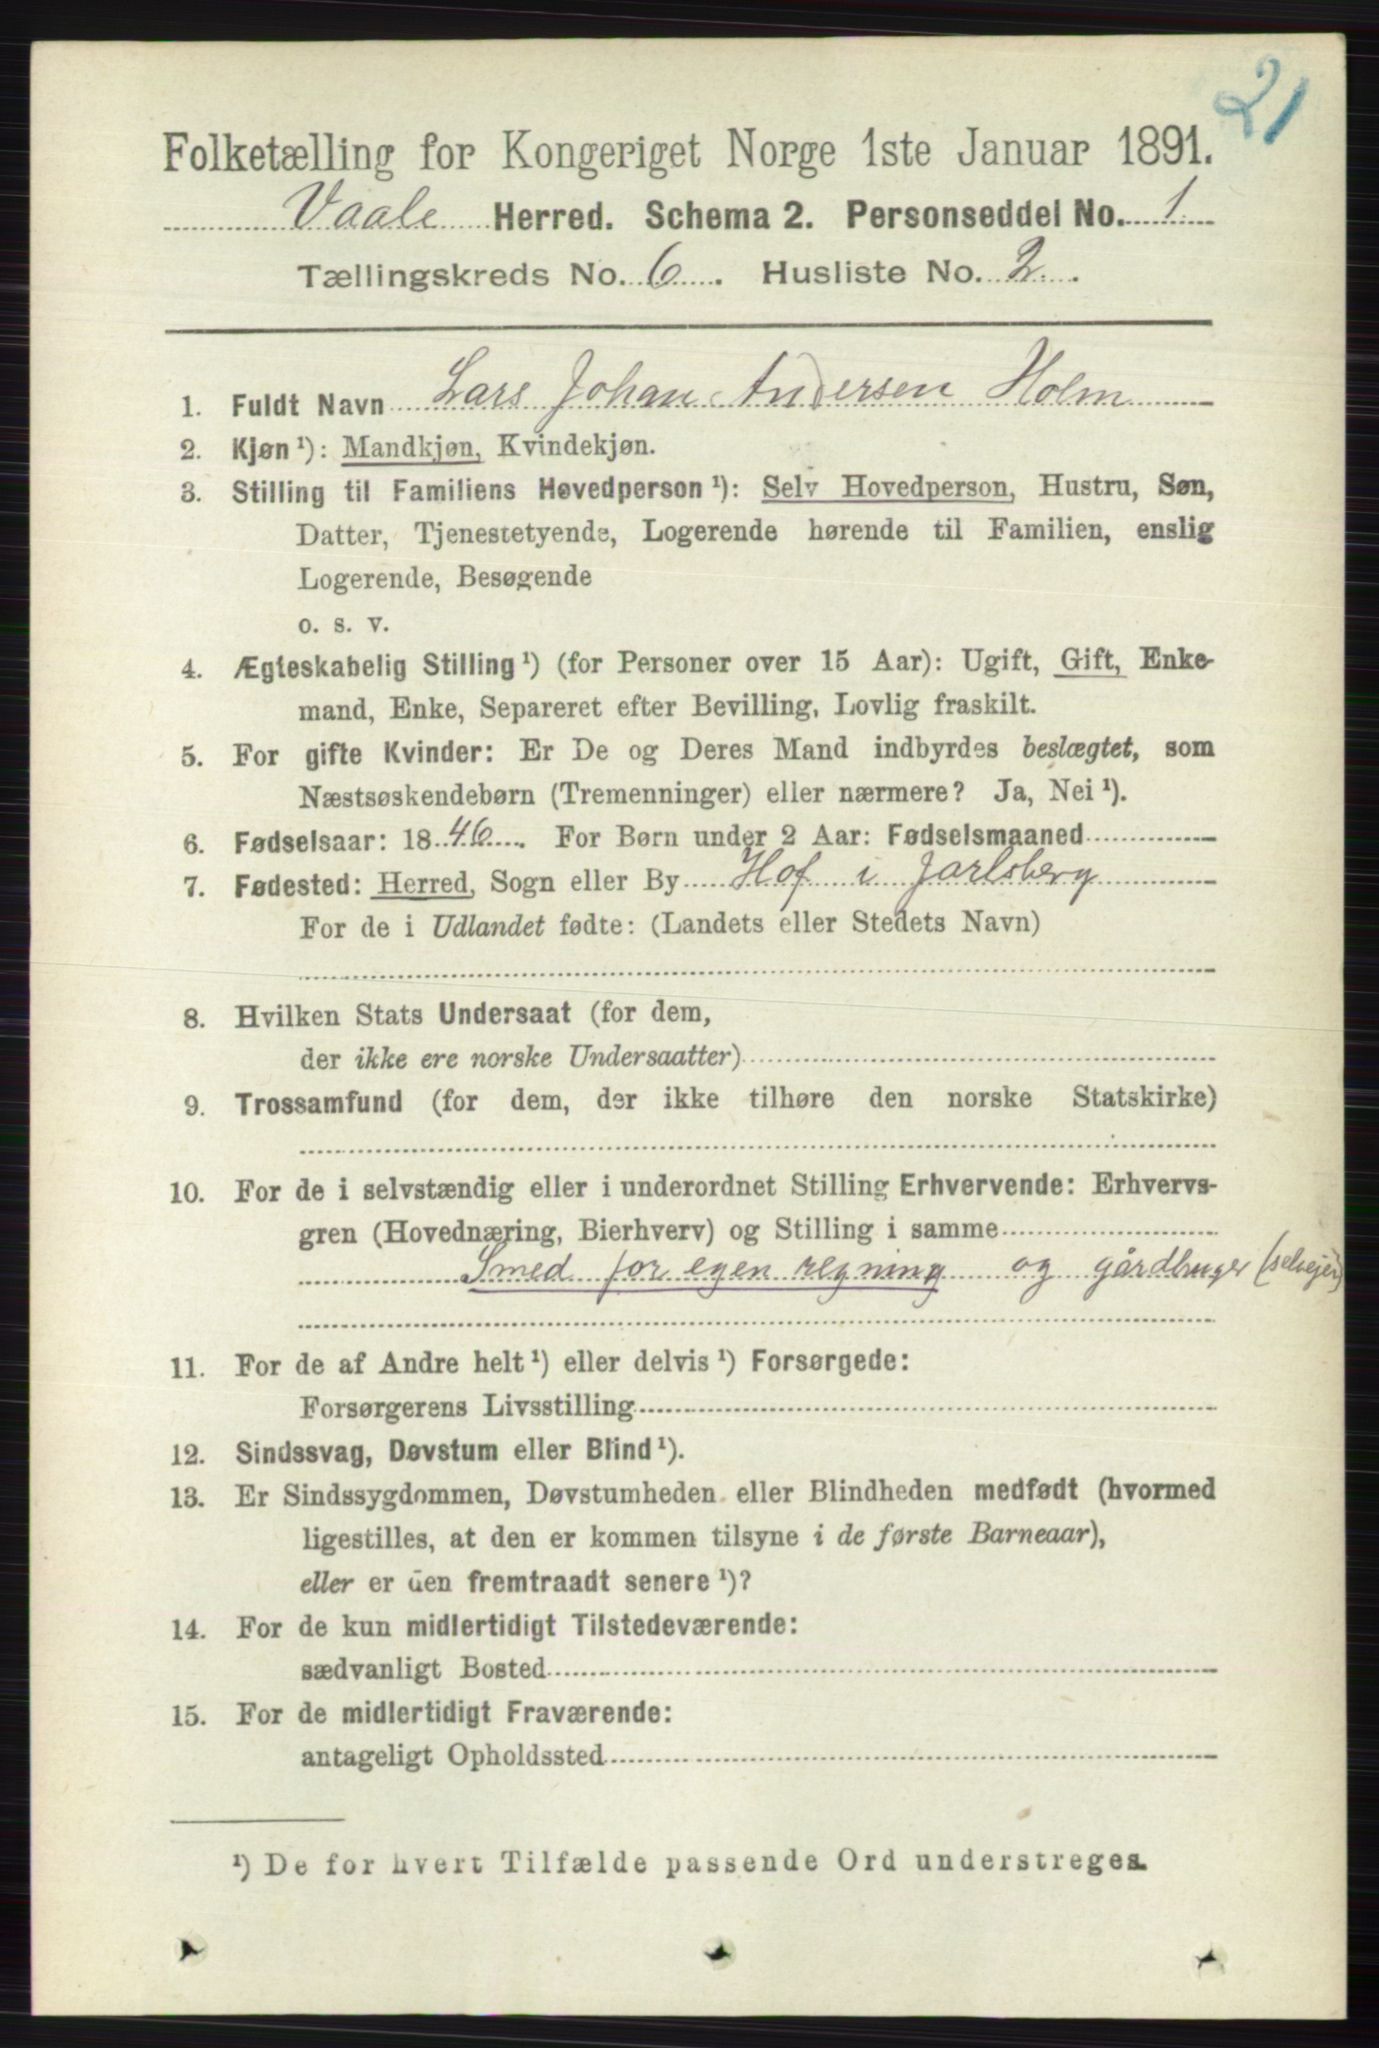 21
Folketælling for Kongeriget Norge 1ste Januar 1891.
Vaale Herred. Schema 2. Personseddel No. 1
Tællingskreds No. 6. Husliste No. 2.
1. Fuldt Navn Lars Johan Andersen Holm
2. Kjøn¹): Mandkjøn, Kvindekjøn.
3. Stilling til Familiens Hovedperson¹): Selv Hovedperson, Hustru, Søn,
Datter, Tjenestetyende, Logerende hørende til Familien, enslig
Logerende, Besøgende
o. s. v.
4. Ægteskabelig Stilling¹) (for Personer over 15 Aar): Ugift, Gift, Enke-
mand, Enke, Separeret efter Bevilling, Lovlig fraskilt.
5. For gifte Kvinder: Er De og Deres Mand indbyrdes beslægtet, som
Næstsøskendebørn (Tremenninger) eller nærmere? Ja, Nei¹).
6. Fødselsaar: 1846. For Børn under 2 Aar: Fødselsmaaned
7. Fødested: Herred, Sogn eller By Hof i Jarlsberg
For de i Udlandet fødte: (Landets eller Stedets Navn)
8. Hvilken Stats Undersaat (for dem,
der ikke ere norske Undersaatter)
9. Trossamfund (for dem, der ikke tilhøre den norske Statskirke)
10. For de i selvstændig eller i underordnet Stilling Erhvervende: Erhvervs-
gren (Hovednæring, Bierhverv) og Stilling i samme
Smed for egen regning og gårdbruger (selvejer)
11. For de af Andre helt¹) eller delvis¹) Forsørgede:
Forsørgerens Livsstilling
12. Sindssvag, Døvstum eller Blind¹).
13. Er Sindssygdommen, Døvstumheden eller Blindheden medfødt (hvormed
ligestilles, at den er kommen tilsyne i de første Barneaar),
eller er den fremtraadt senere¹)?
14. For de kun midlertidigt Tilstedeværende:
sædvanligt Bosted
15. For de midlertidigt Fraværende:
antageligt Opholdssted
¹) De for hvert Tilfælde passende Ord understreges.